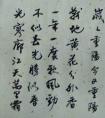 歲々重陽今又重陽
戰地黄花分外香
一年一度秋風勁
不似春光勝似春
光寥廓江天萬里霜